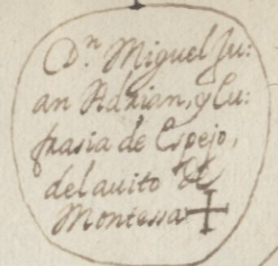 D.ⁿ Miguel Ju:
an Adrian, y Eu:
frasia de Espejo,
del auito de
Montessa